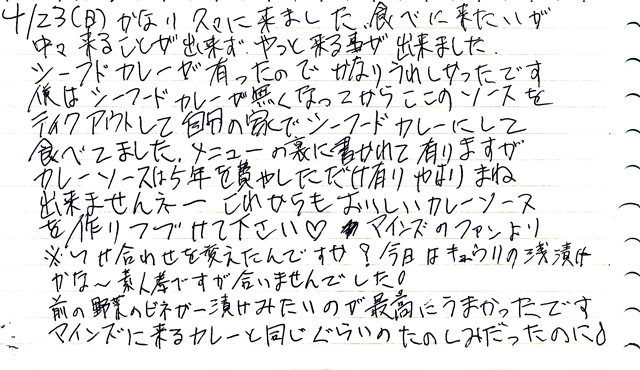 4/23(日)かなり久々に来ました。食べに来たいが
中々来ることが出来ず、やっと来る事が出来ました。
シーフードカレーが有ったのでかなりうれしかったです
僕はシーフードカレーが無くなってからここのソースを
テイクアウトして自分の家でシーフードカレーにして
食べてました。メニューの裏に書かれて有りますが
カレーソースは5年を費やしただけ有りやはりまね
出来ませんネー これからもおいしいカレーソース
を作りつづけて下さい♡ マインズのファンより
※つけ合わせを変えたんですか？今日はキュウリの浅漬け
かな〜素人差ですが合いませんでした。
前の野菜のビネガー漬けみたいのが最高にうまかったです
マインズに来るカレーと同じぐらいのたのしみだったのに。